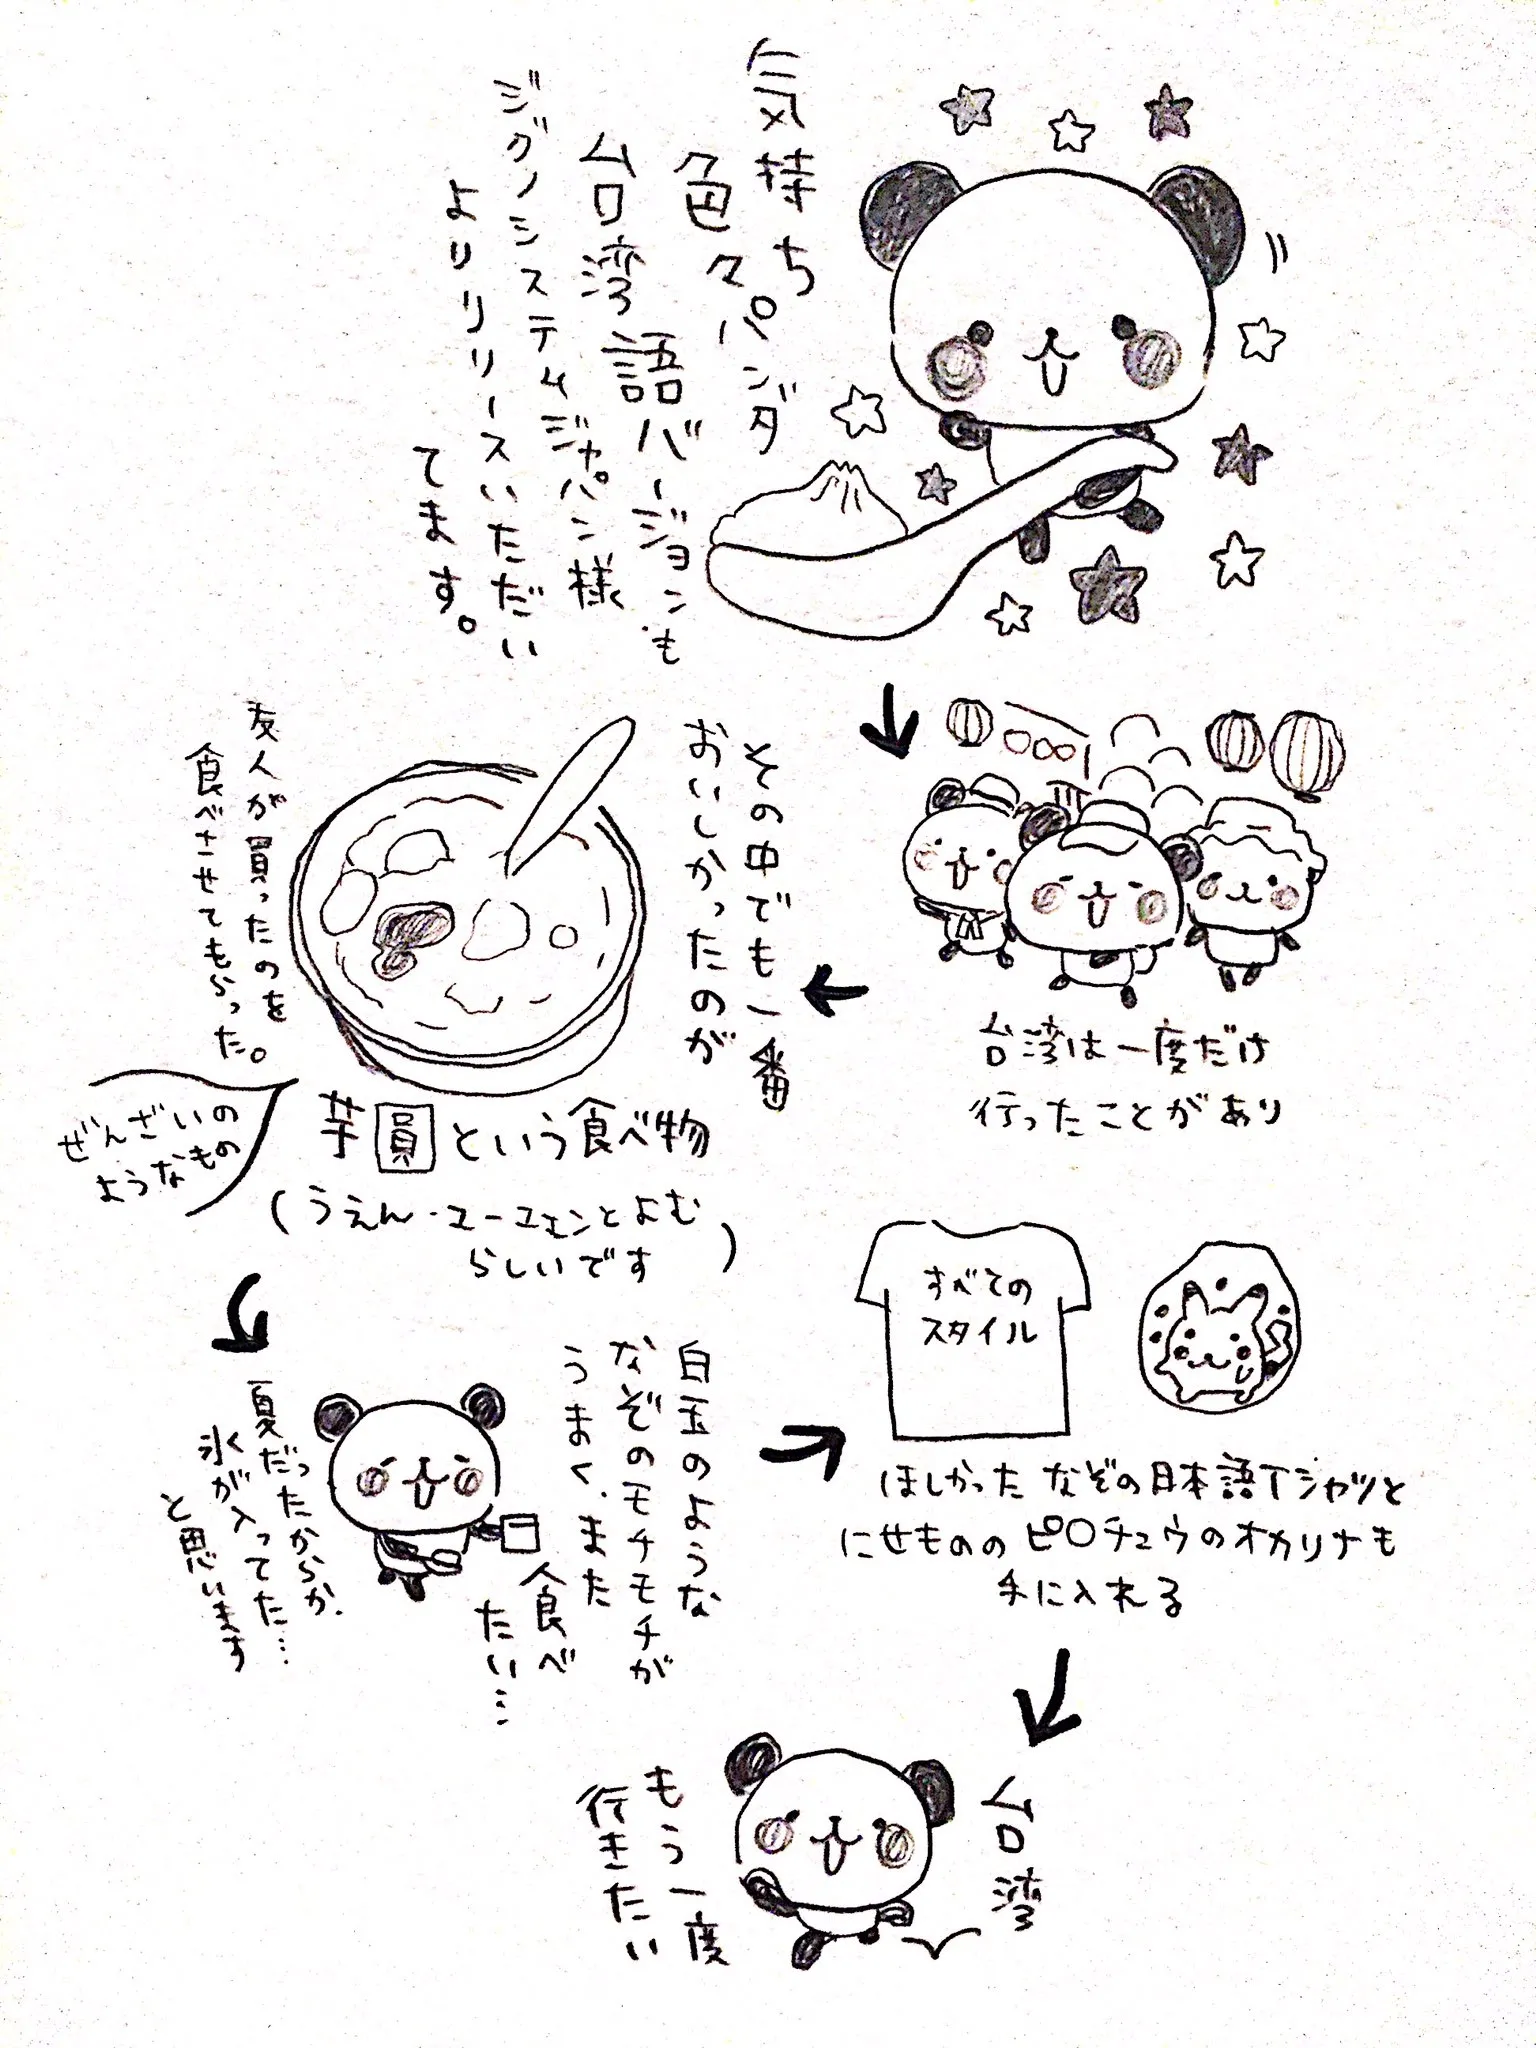 気持ち
色々パンダ
台湾語バージョンも
ジグノシステムジャパン様
よりリリースいただい
てます。
台湾は一度だけ
行ったことがあり
その中でも一番
おいしかったのが
友人が買ったのを
食べさせてもらった。
芋員という食べ物
(うえん・ユーユェンとよむ
らしいです)
ぜんざいの
ようなもの
白玉のような
なぞのモチモチが
うまく、また
食べ
たい…
夏だったからか、
氷が入ってた…
と思います
すべての
スタイル
ほしかった なぞの日本語Tシャツと
にせもののピ〇チュウのオカリナも
手に入れる
台湾
もう一度
行きたい